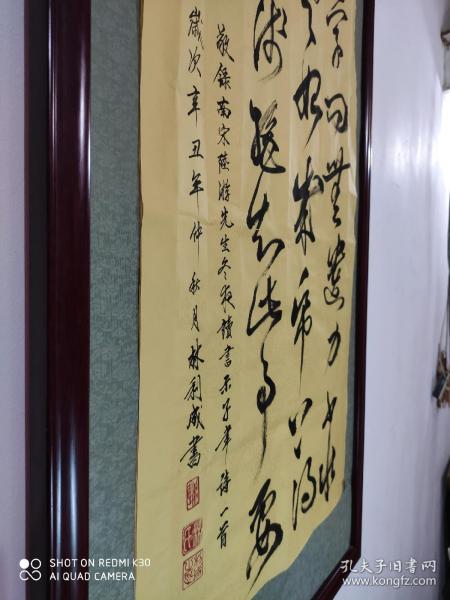 学问無遗力少壮
夫老始成帋上得
浅绝知此事要
敬錄南宋陸游先生冬夜讀書示子聿詩一首
歲次辛丑年仲秋月林書
SHOT ON REDMI K30
AI QUAD CAMERA
孔夫子旧书网
www.kongfz.com